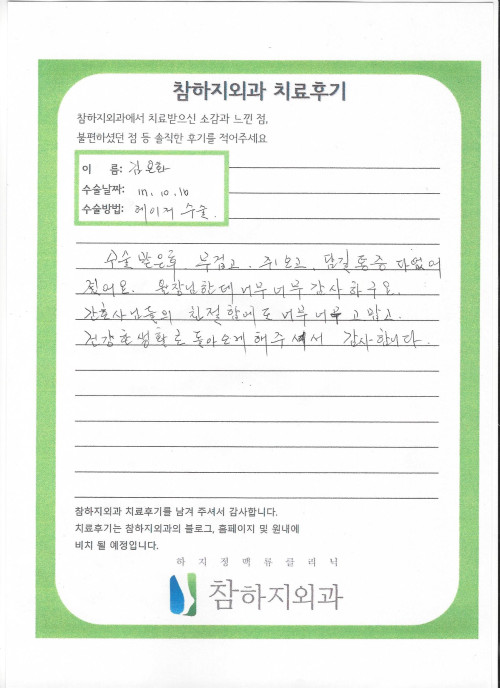 참하지외과 치료후기
참하지외과에서 치료받으신 소감과 느낀 점,
불편하셨던 점 등 솔직한 후기를 적어주세요
이 름: 김온화
수술날짜: 17. 10. 16
수술방법: 레이저 수술.
수술 받은후, 무겁고, 쥐오고, 당길 통증 다없어
졌어요. 원장님한테 너무너무 감사하구요.
간호사님들의 친절함에도 너무너무 고맙고.
건강한생활로 돌아오게 해주셔서 감사합니다.
참하지외과 치료후기를 남겨 주셔서 감사합니다.
치료후기는 참하지외과의 블로그, 홈페이지 및 원내에
비치 될 예정입니다.
하지정맥류클리닉
참하지외과